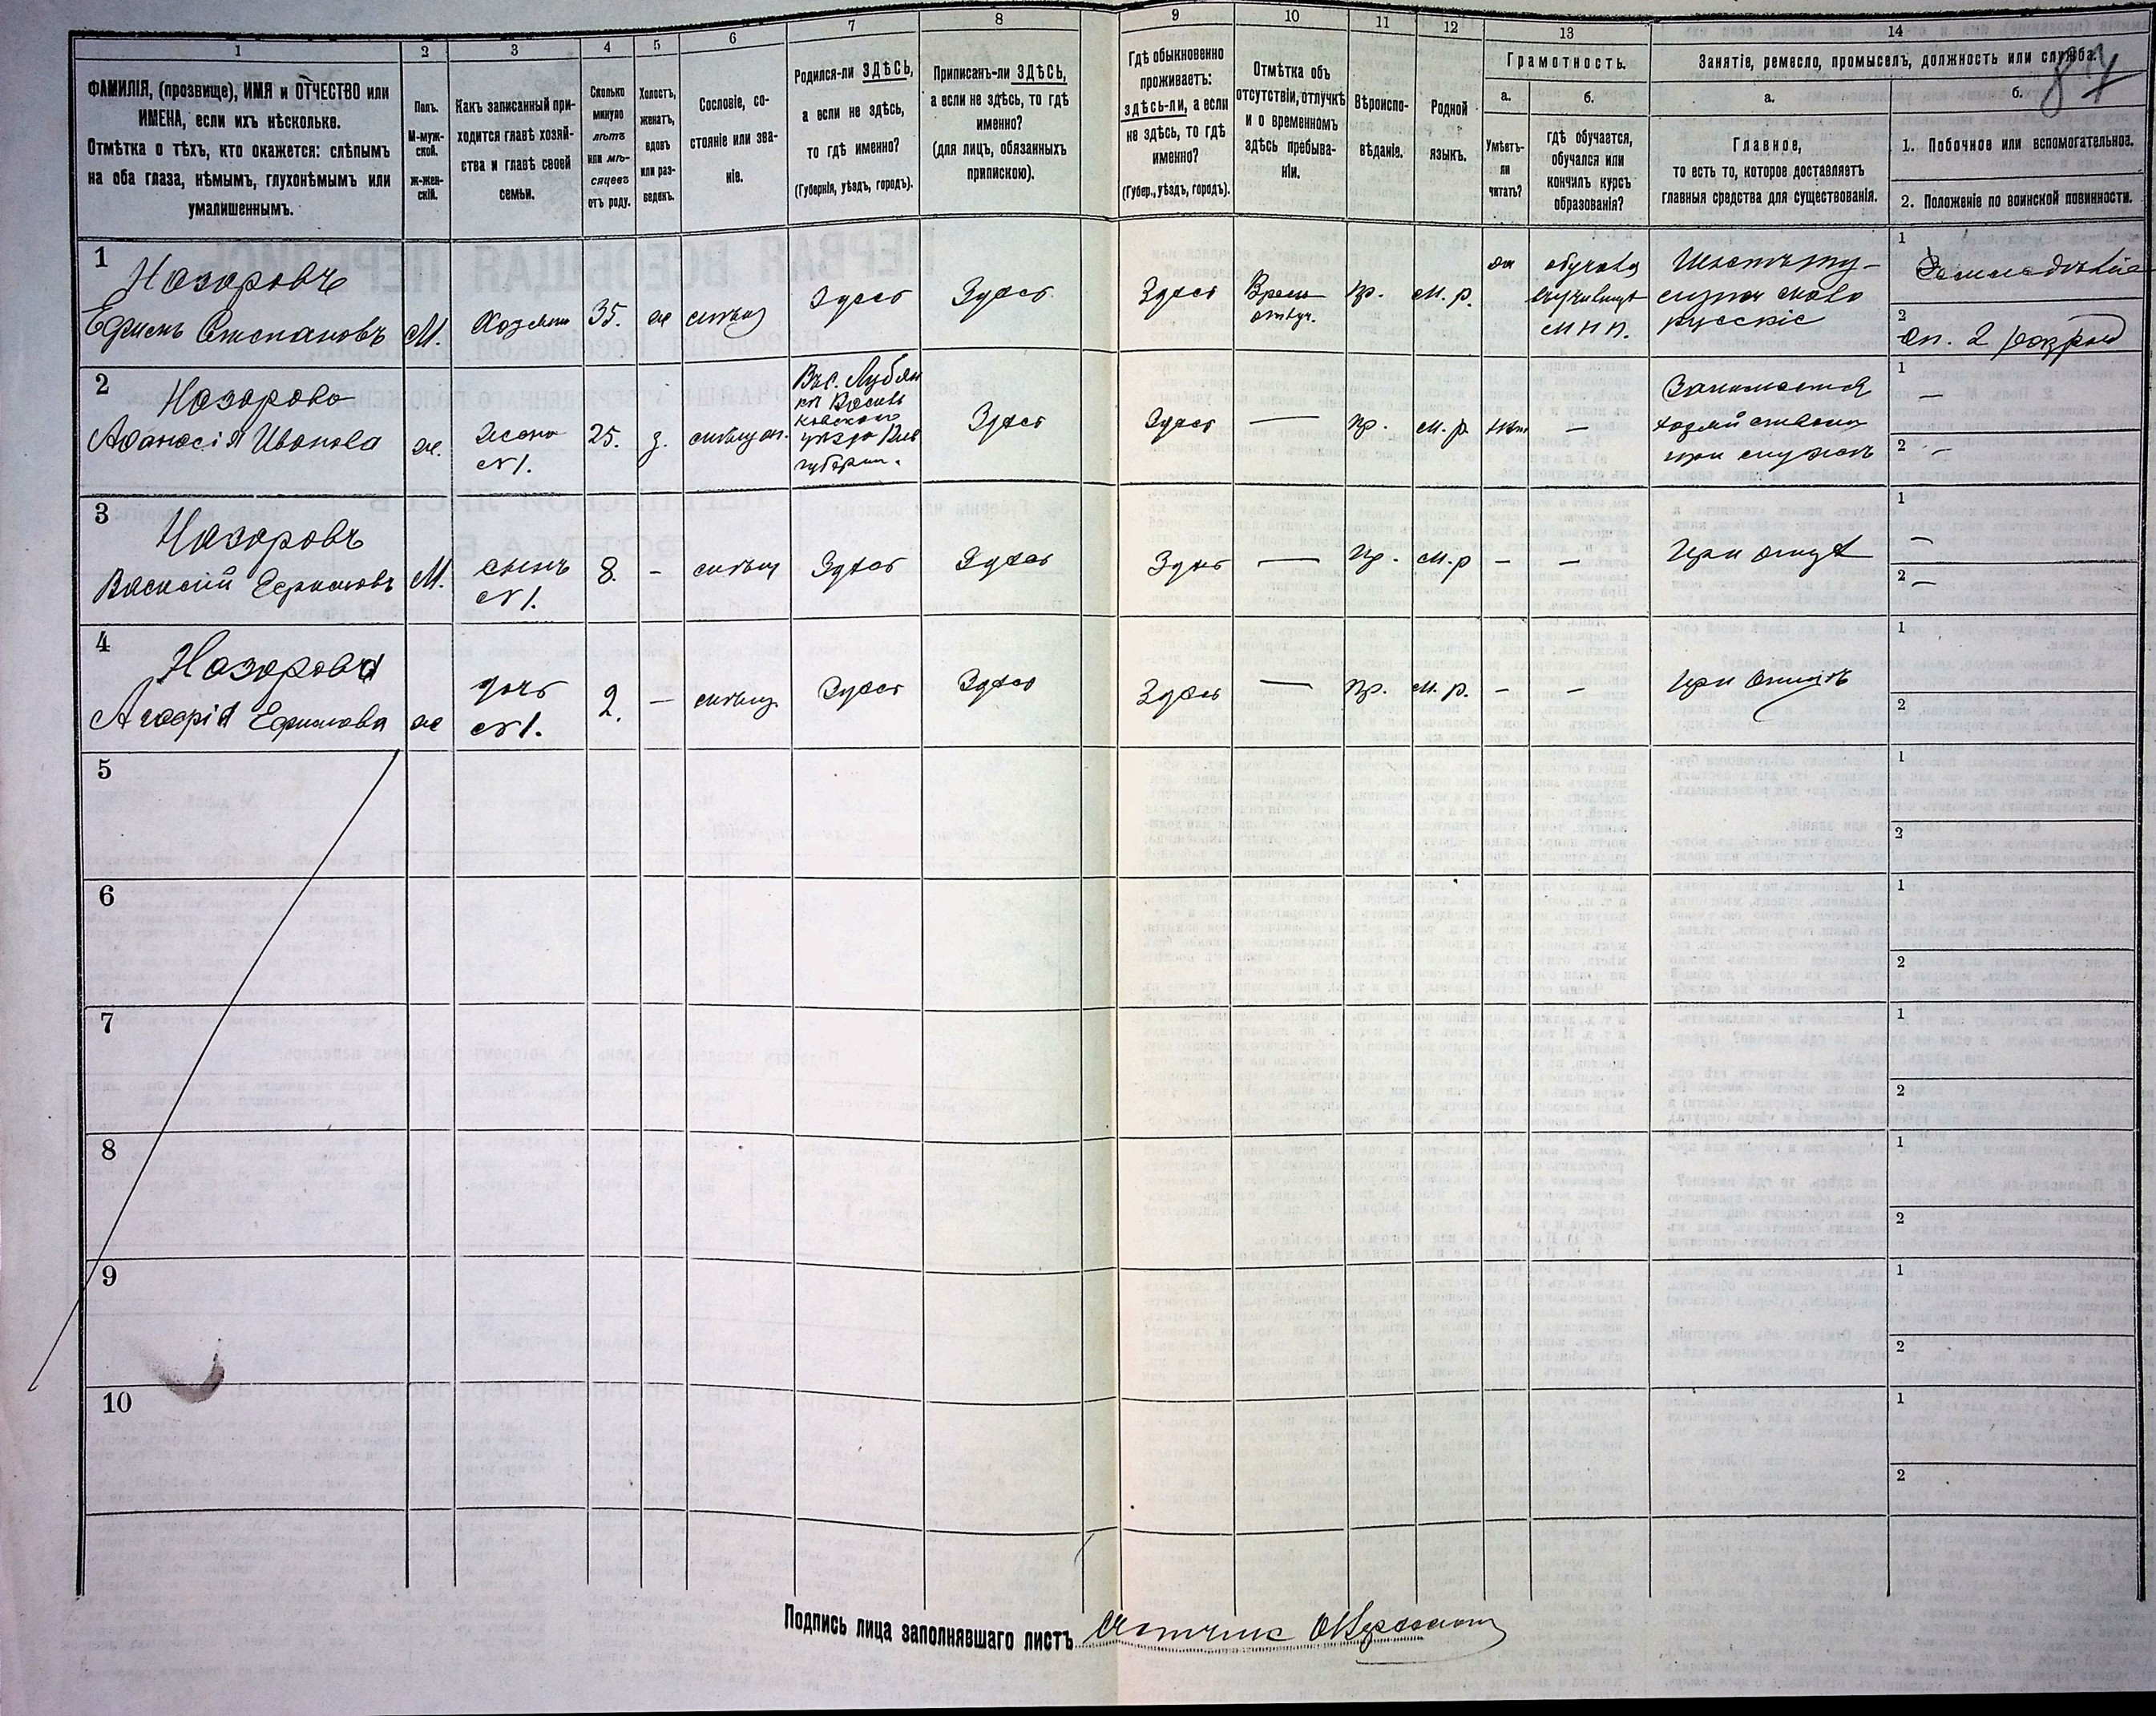 1
2
3
4
5
6
7
8
9
10
11
12
13
14
87
ФАМИЛІЯ, (прозвище), ИМЯ и ОТЧЕСТВО или
ИМЕНА, если ихъ нѣсколько.
Отмѣтка о тѣхъ, кто окажется: слѣпымъ
на оба глаза, нѣмымъ, глухонѣмымъ или
умалишеннымъ.
Полъ.
М-муж-
ской.
ж-жен-
скій.
Какъ записанный при-
ходится главѣ хозяй-
ства и главѣ своей
семьи.
Сколько
минуло
лѣтъ
или мѣ-
сяцевъ
отъ роду.
Холостъ,
женатъ,
вдовъ
или раз-
веденъ.
Сословіе, со-
стояніе или зва-
ніе.
Родился-ли ЗДѢСЬ,
а если не здѣсь,
то гдѣ именно?
(Губернія, уѣздъ, городъ).
Приписанъ-ли ЗДѢСЬ,
а если не здѣсь, то гдѣ
именно?
(для лицъ, обязанныхъ
припискою).
Гдѣ обыкновенно
проживаетъ:
здѣсь-ли, а если
не здѣсь, то гдѣ
именно?
(Губер., уѣздъ, городъ).
Отмѣтка объ
отсутствіи, отлучкѣ
и о временномъ
здѣсь пребыва-
ніи.
Вѣроиспо-
вѣданіе.
Родной
языкъ.
Грамотность.
а.
Умѣетъ-
ли
читать?
б.
гдѣ обучается,
обучался или
кончилъ курсъ
образованія?
Занятіе, ремесло, промыселъ, должность или служба.
а.
Главное,
то есть то, которое доставляетъ
главныя средства для существованія.
б.
1. Побочное или вспомогательное.
2. Положеніе по воинской повинности.
1
Назаровъ
Ефимъ Степановъ
М.
Хозяинъ
35.
ж
Здѣсь
Здѣсь
Здѣсь
Врем.
отлуч.
Пр.
м. р.
да
М Н П.
1
Земледѣліе
2
оп. 2 разряд
2
Назарова
Афанасія Иванова
ж.
Жена
№1.
25.
з.
Въ с.
уѣзда Кіев
губерніи.
Здѣсь
Здѣсь
—
Пр.
м. р.
нѣт
—
Занимается
хозяйствомъ
при мужѣ
1
—
2
—
3
Назаровъ
Василій Ефимовъ
М.
сынъ
№1.
8.
-
Здѣсь
Здѣсь
Здѣсь
—
Пр.
м. р
—
—
При отцѣ
1
—
2
—
4
Назарова
Ефимова
ж
дочь
№1.
2.
—
Здѣсь
Здѣсь
Здѣсь
—
Пр.
м. р.
—
—
При отцѣ
1
2
5
1
2
6
1
2
7
1
2
8
1
2
9
1
2
10
1
2
Подпись лица заполнявшаго листъ
Счетчик